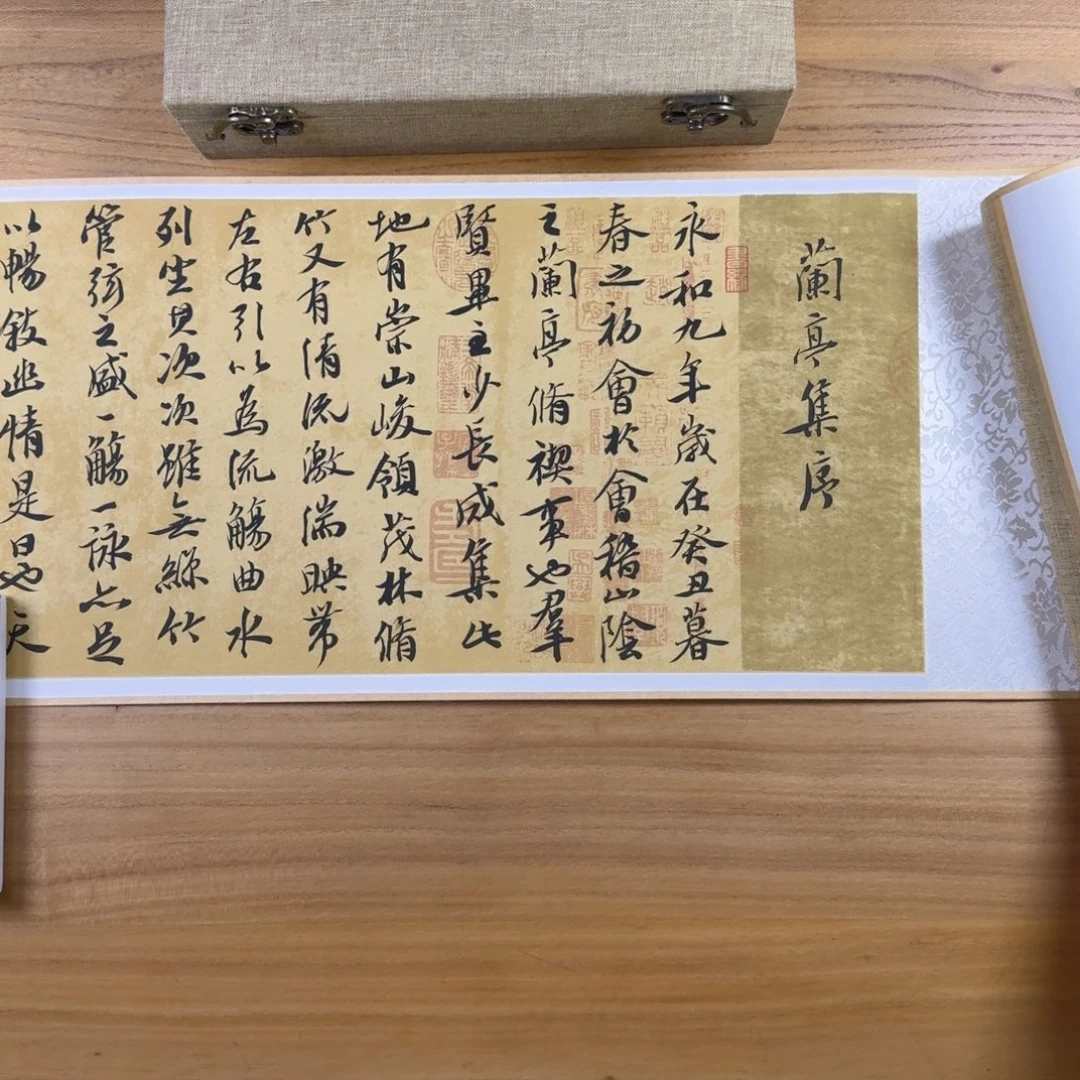 蘭亭集序
永和九年歲在癸丑暮
春之初會於會稽山陰
之蘭亭脩禊事也羣
賢畢至少長咸集此
地有崇山峻領茂林脩
竹又有清流激湍映帶
左右引以為流觴曲水
列坐其次次雖無絲竹
管弦之盛一觴一詠亦足
以暢敘幽情是日也天